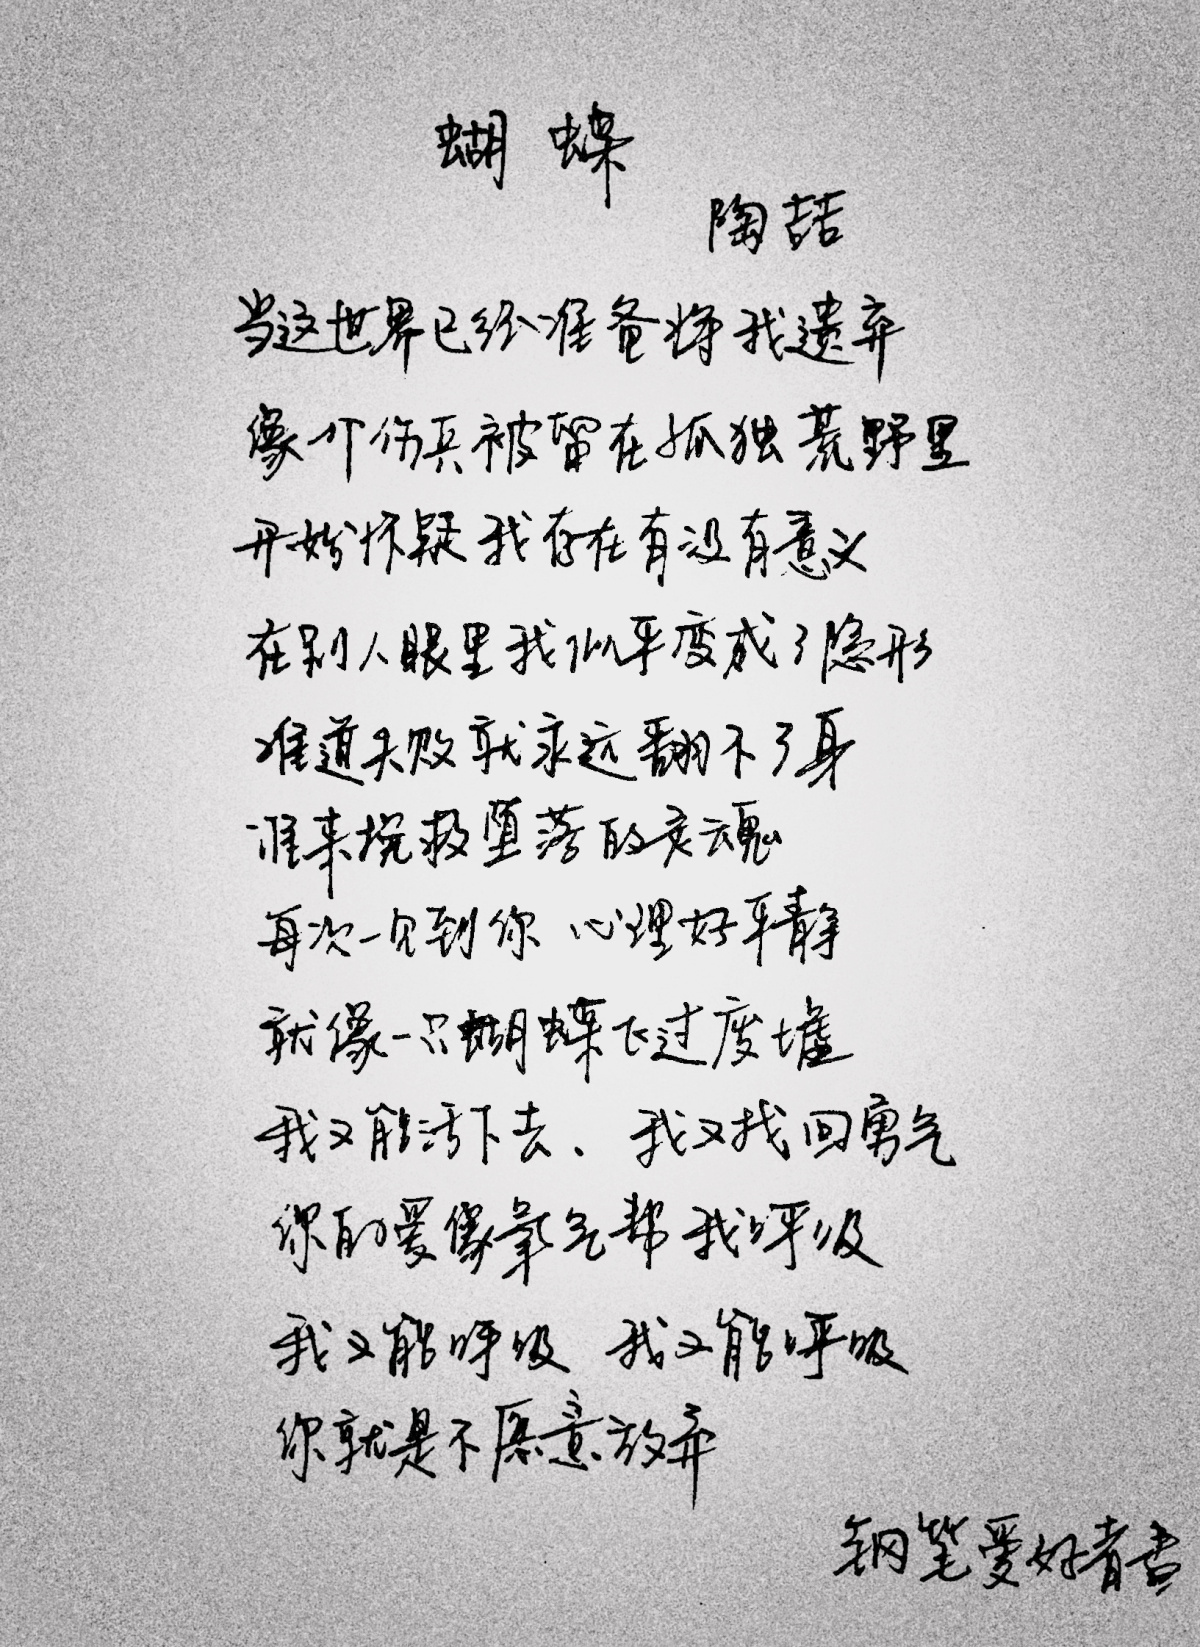 蝴蝶
陶喆
当这世界已经准备将我遗弃
像一个伤兵被留在孤独荒野里
开始怀疑我存在有没有意义
在别人眼里我似乎变成了隐形
难道失败就永远翻不了身
谁来挽救堕落的灵魂
每次一见到你 心理好平静
就像一只蝴蝶飞过废墟
我又能活下去、我又找回勇气
你的爱像氧气帮我呼吸
我又能呼吸 我又能呼吸
你就是不愿意放弃
钢笔爱好者书